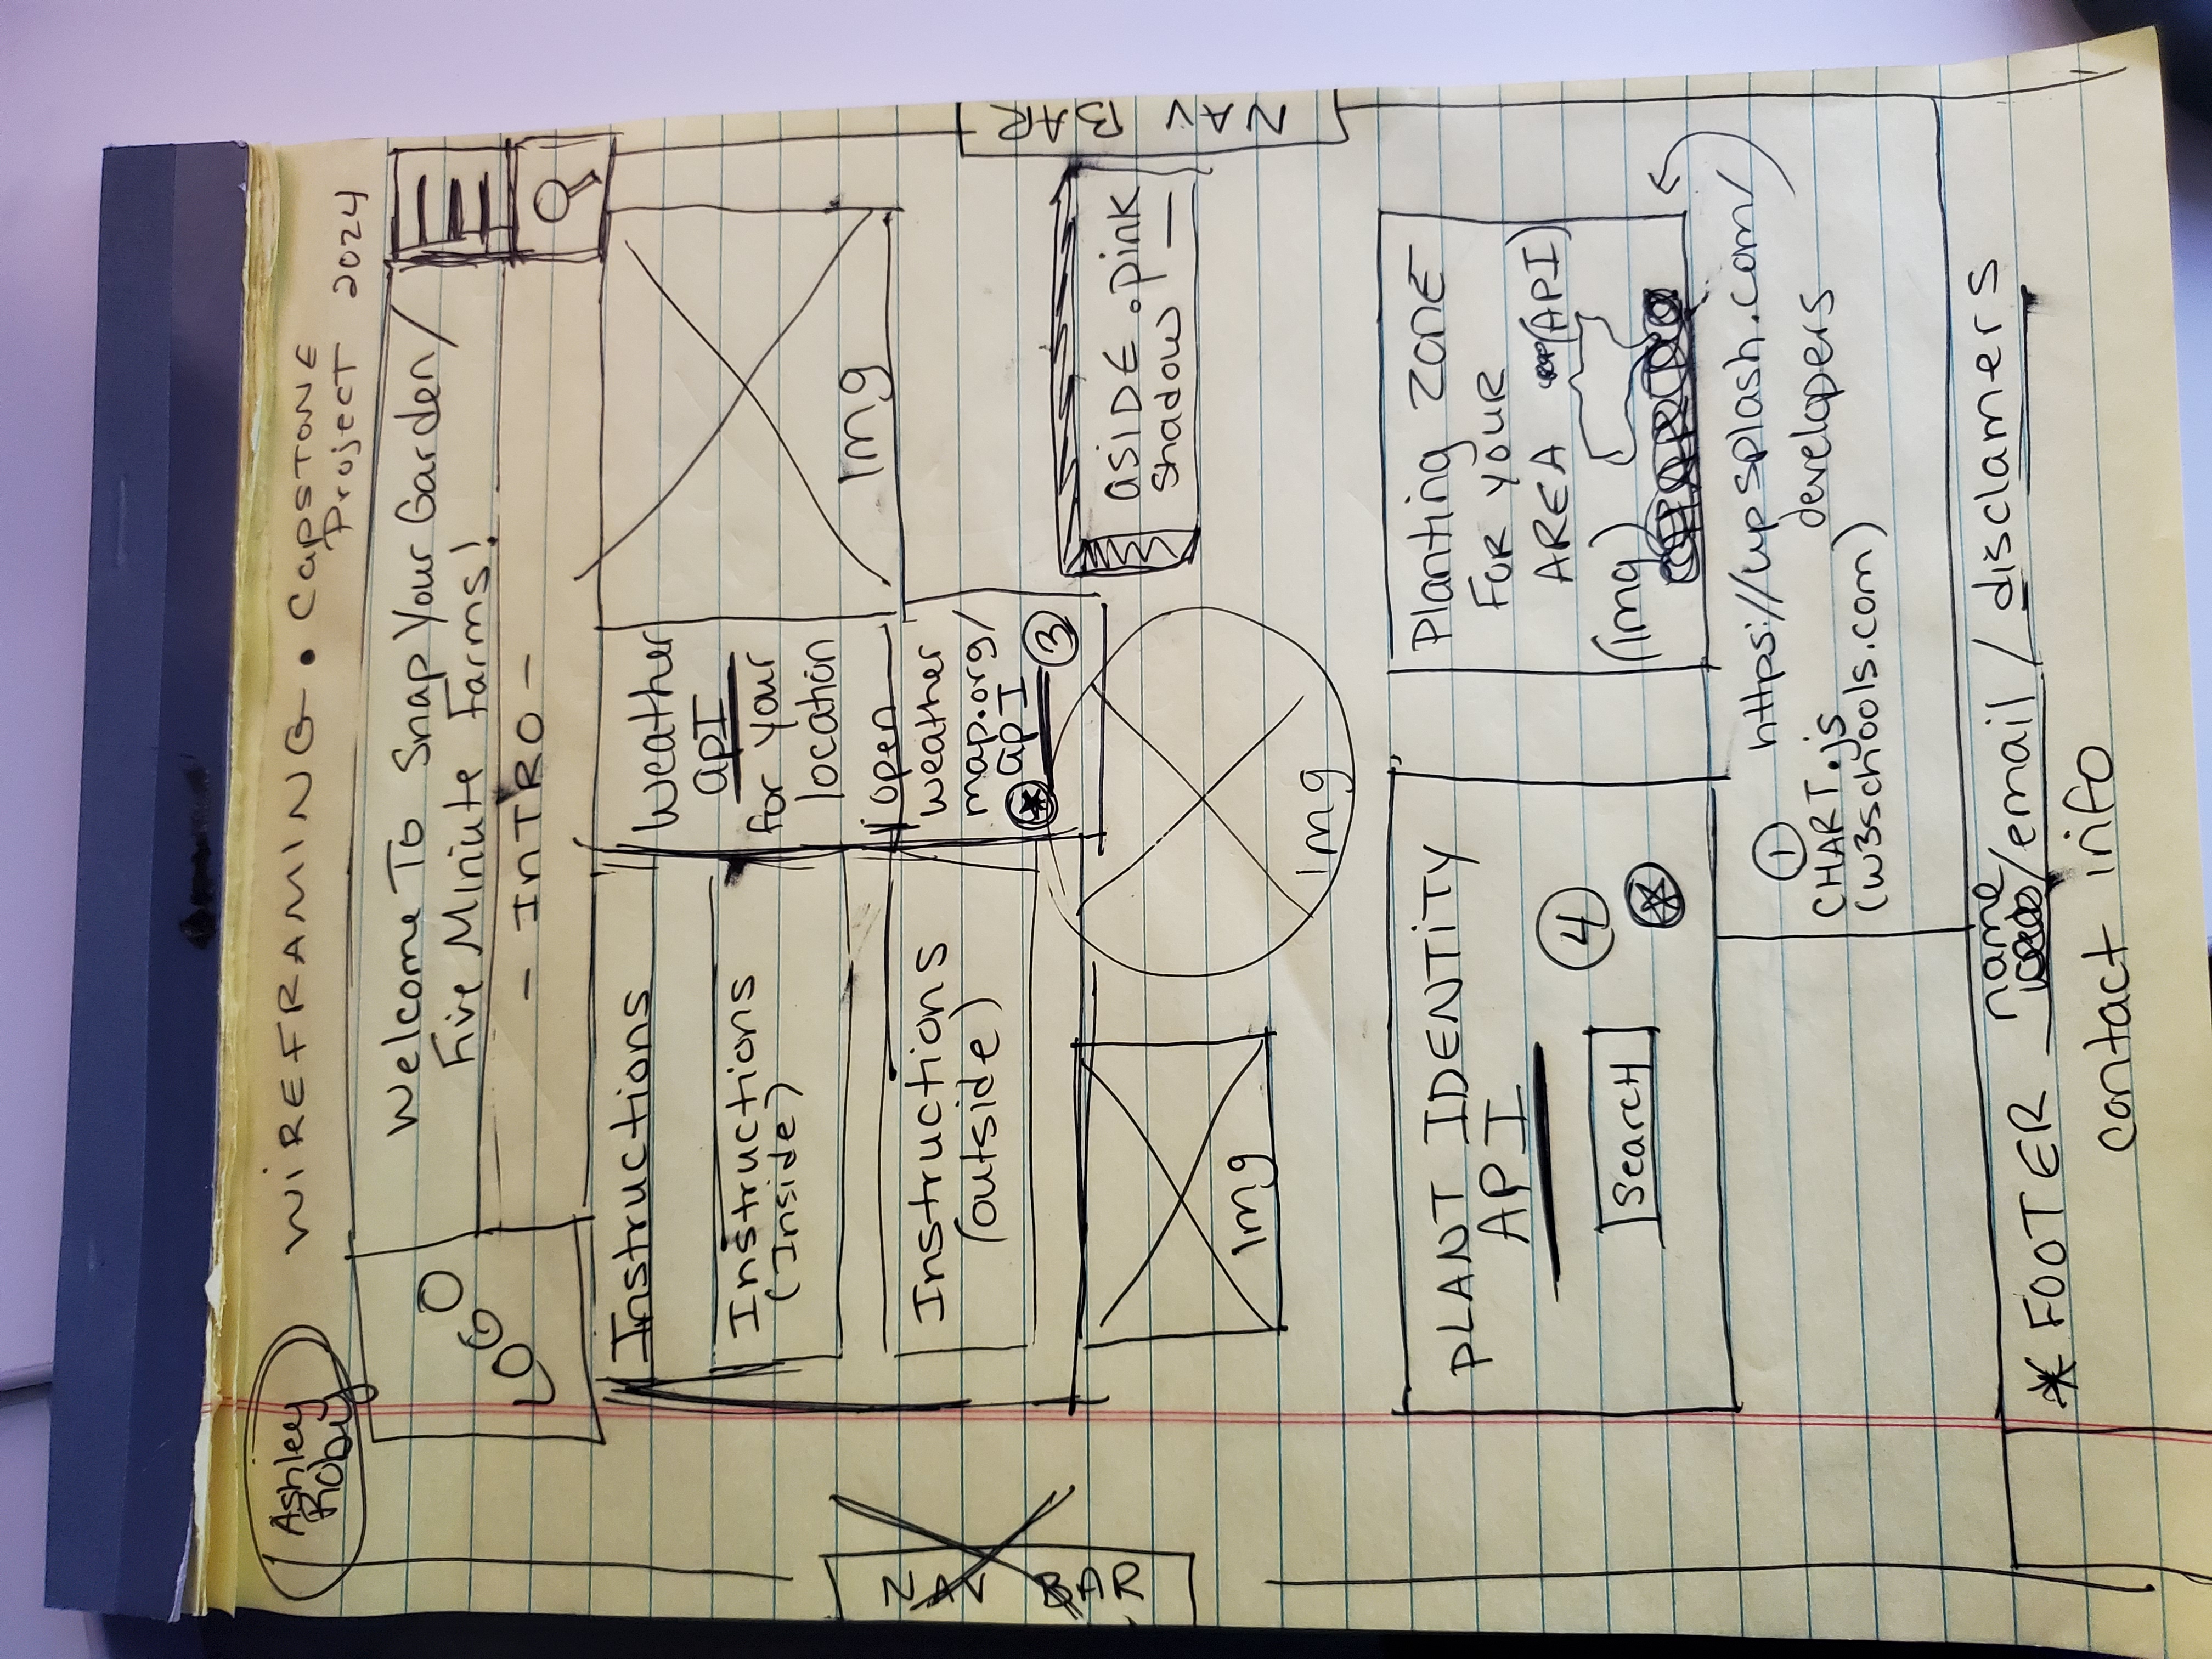 Ashley
Roby
WIREFRAMING • CAPSTONE
Project 2024
LOGO
Welcome To Snap Your Garden/
Five Miniute Farms!
- INTRO -
Instructions
Instructions
(Inside)
Instructions
(outside)
Weather
apI
for your
location
open
weather
map.org/
apI
3
Img
NAV BAR
NAV BAR
Img
Img
ASIDE . pink
shadow —
PLANT IDENTITY
API
4
Search
Planting ZONE
FOR YOUR
AREA (API)
(Img)
1
https://upsplash.com/
developers
CHART.js
(w3schools.com)
* FOOTER name /email / disclamers
contact info